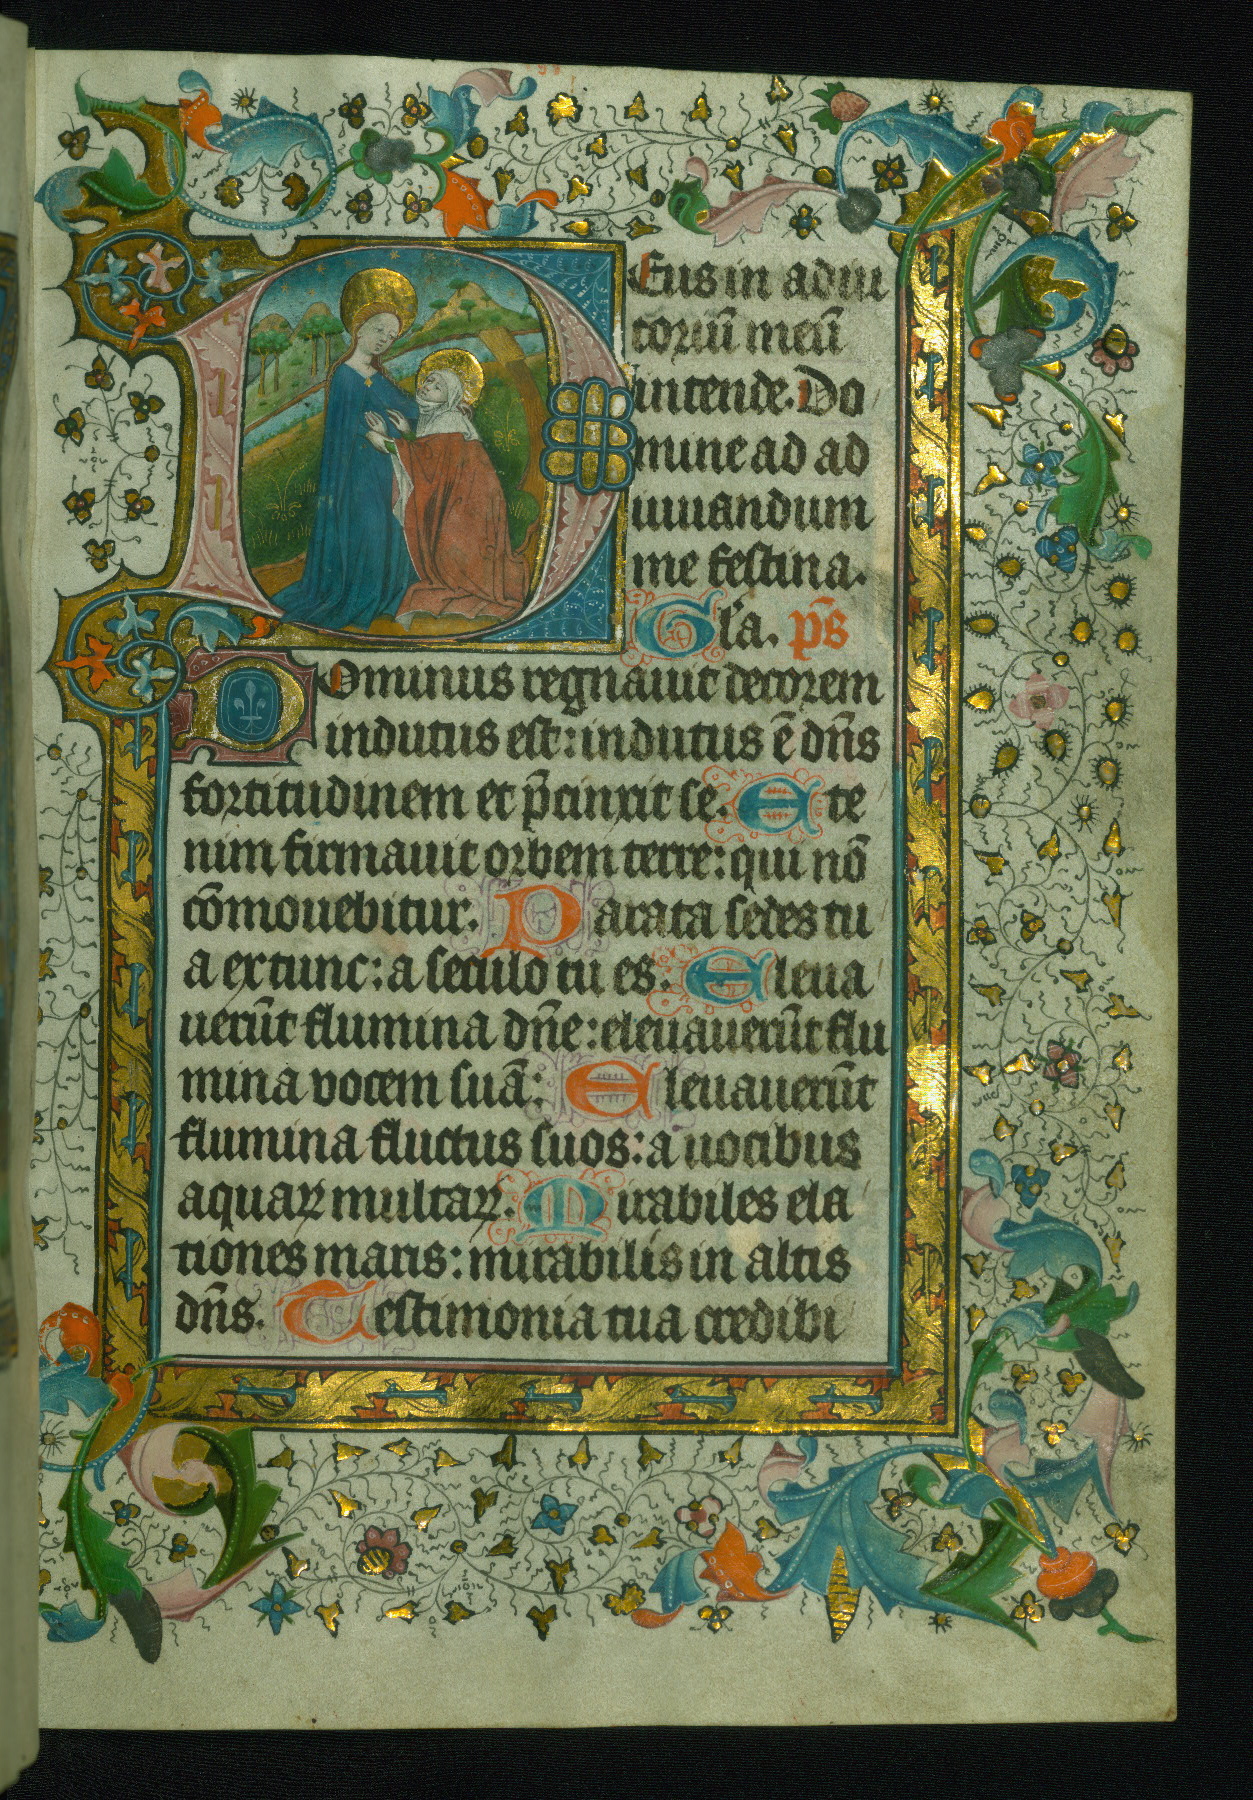 Eus in adiu
toriū meū
intende. Do
mine ad ad
iuuandum
me festina.
Gl'a. p̄s
Dominus regnauit decorem
indutus est: indutus ē dn̄s
fortitudinem et p̄cinxit se. Ete
nim firmauit orbem terre: qui nō
cōmouebitur. Parata sedes tu
a ex tunc: a seculo tu es. Eleua
uerūt flumina dn̄e: eleuauerūt flu
mina vocem suā: Eleuauerūt
flumina fluctus suos: a uocibus
aquaꝝ multaꝝ. Mirabiles ela
tiones maris: mirabilis in altis
dn̄s. Testimonia tua credibi